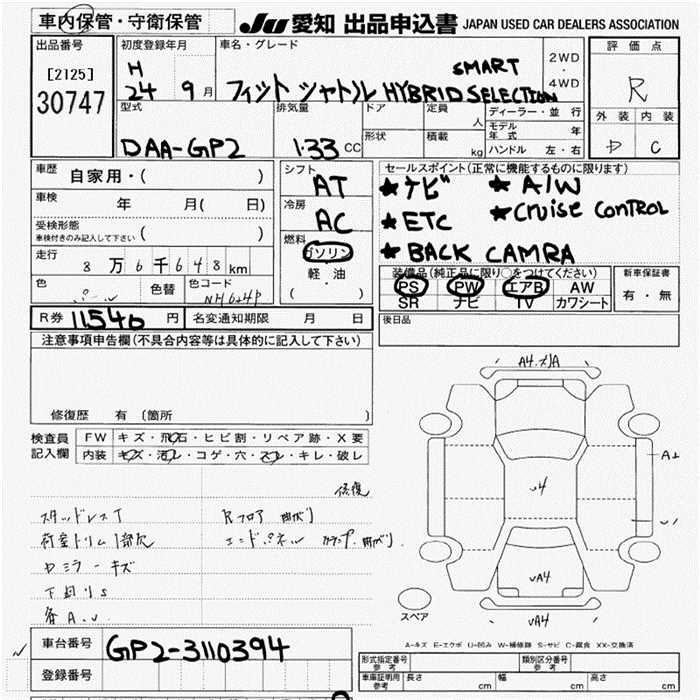 車内保管・守衛保管
JU 愛知 出品申込書 JAPAN USED CAR DEALERS ASSOCIATION
出品番号
[2125]
30747
初度登録年月
H
24 9月
車名・グレード
SMART
フィット シャトル HYBRID SELECTION
2WD
・
4WD
評価点
R
外装 内装
D C
型式
DAA-GP2
排気量
1.33 CC
ドア
形状
定員
人
積載
kg
ディーラー・並行
モデル年式 年
ハンドル 左・右
車歴
自家用・( )
車検
年 月( 日)
受検形態
車検付きのみ記入して下さい ( )
走行
8万6千648km
色
パール
色替
色コード
NH624P
シフト
AT
冷房
AC
燃料
ガソリン
軽・油
( ・ )
セールスポイント(正常に機能するものに限ります)
★ナビ ★A/W
★ETC ★CRUISE CONTROL
★BACK CAMRA
装備品(純正品に限り○をつけてください)
PS PW エアB AW
SR ナビ TV カワシート
新車保証書
有・無
R券 11540 円 名変通知期限 月 日
後日品
注意事項申告欄(不具合内容等は具体的に記入して下さい)
修復歴 有 〔箇所 〕
検査員
記入欄
FW キズ・飛石・ヒビ割・リペア跡・X要
内装 キズ・汚レ・コゲ・穴・スレ・キレ・破レ
修復
スタッドレスT Rフロア 曲がり
荷室トリム1部欠 エンドパネル
ドミラーキズ
下廻りS
各A.U
A4
A1
U4
U1
UA4
UA4
スペア
A-キズ E-エクボ U-凹み W-補修跡 S-サビ C-腐食 XX-交換済
車台番号
GP2-3110394
登録番号
形式指定番号
参考
類別区分番号
参考
車庫証明用
参考
長さ cm 幅 cm 高さ cm